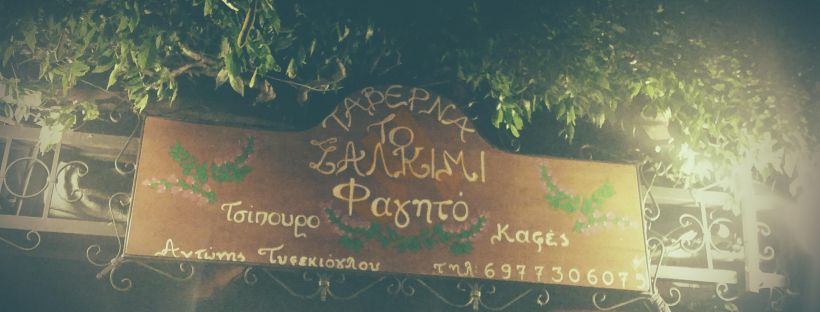 ΤΑΒΕΡΝΑ
ΤΟ
ΣΑΛΚΙΜΙ
Φαγητό
Τσίπουρο
Καφές
Αντώνης Τυφεκιόγλου τηλ: 6977306075